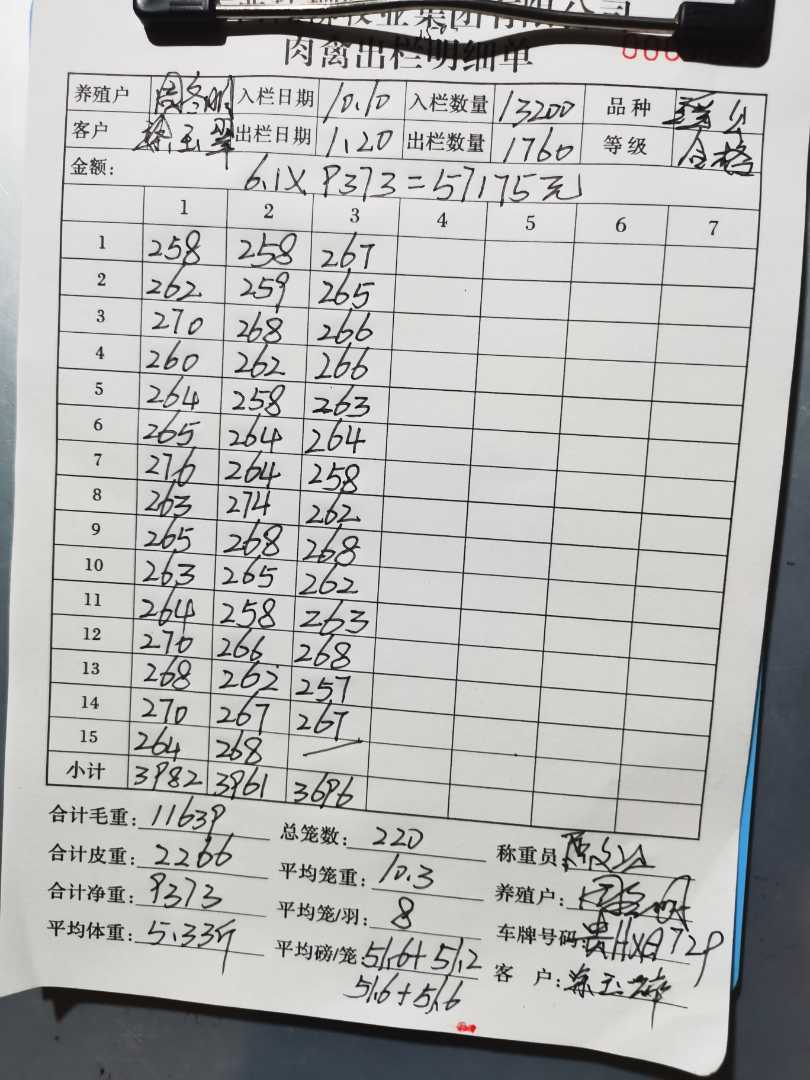 牧业集团有限公司
肉禽出栏明细单
养殖户 入栏日期 10.10 入栏数量 13200 品种
客户 出栏日期 1.20 出栏数量 1760 等级 合格
金额: 6.1X9373=57175元
1 2 3 4 5 6 7
1 258 258 267
2 262 259 265
3 270 268 266
4 260 262 266
5 264 258 263
6 265 264 264
7 276 264 258
8 263 274 262
9 265 268 268
10 263 265 262
11 264 258 263
12 270 266 268
13 268 262 257
14 270 267 267
15 264 268
小计 3982 3961 3696
合计毛重: 11639 总笼数: 220 称重员:
合计皮重: 2266 平均笼重: 10.3 养殖户:
合计净重: 9373 平均笼/羽: 8 车牌号码: 贵HXA729
平均体重: 5.33斤 平均磅/笼: 51.6+51.2 客户:
51.6+51.6